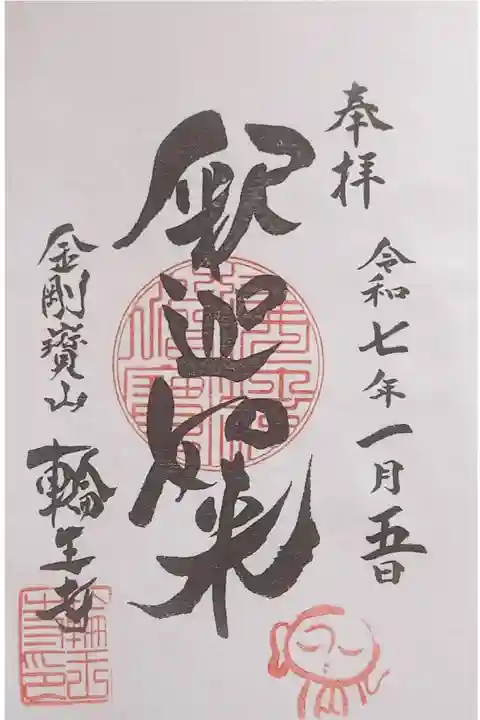 奉拝
令和七年一月五日
釈迦如来
金剛寶山
輪王寺